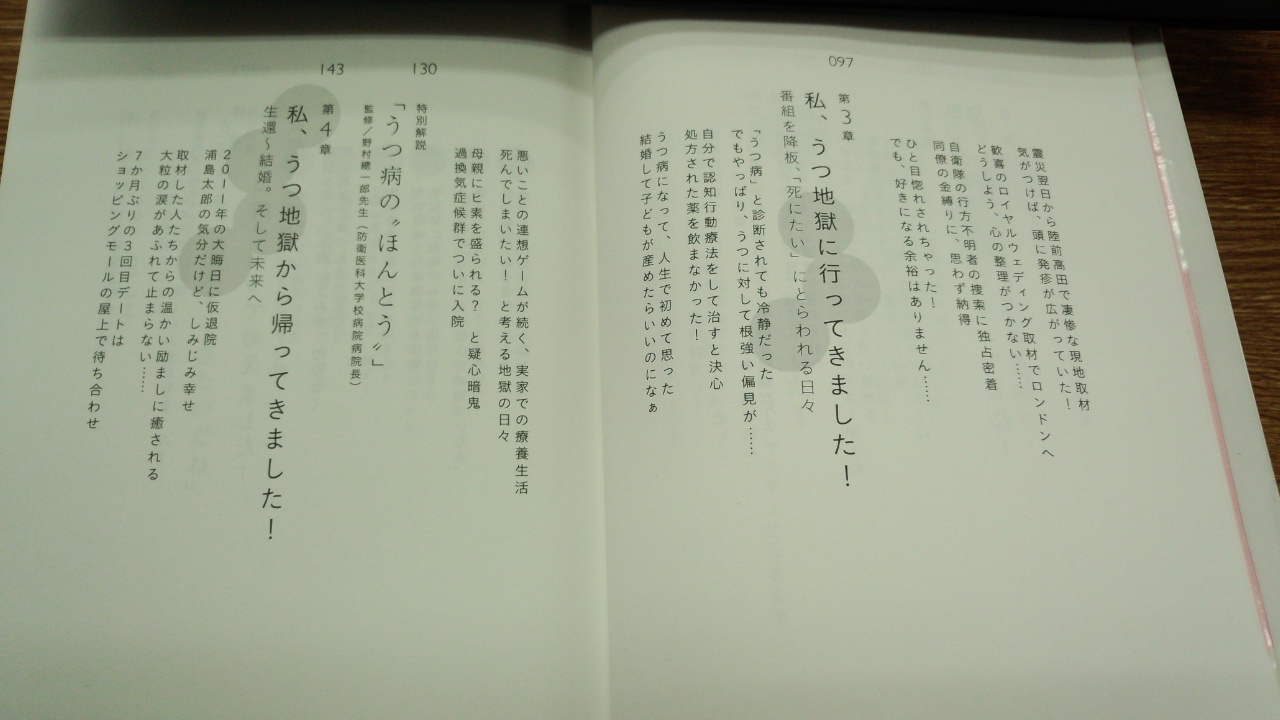 震災翌日から陸前高田で凄惨な現地取材
気がつけば、頭に発疹が広がっていた！
歓喜のロイヤルウェディング取材でロンドンへ
どうしよう、心の整理がつかない……
自衛隊の行方不明者の捜索に独占密着
同僚の金縛りに、思わず納得
ひと目惚れされちゃった！
でも、好きになる余裕はありません……
097
第3章
私、うつ地獄に行ってきました！
番組を降板、「死にたい」にとらわれる日々
「うつ病」と診断されても冷静だった
でもやっぱり、うつに対して根強い偏見が……
自分で認知行動療法をして治すと決心
処方された薬を飲まなかった！
うつ病になって、人生で初めて思った
結婚して子どもが産めたらいいのになぁ
悪いことの連想ゲームが続く、実家での療養生活
死んでしまいたい！　と考える地獄の日々
母親にヒ素を盛られる？　と疑心暗鬼
過換気症候群でついに入院
130
特別解説
「うつ病の〝ほんとう〟」
監修／野村總一郎先生（防衛医科大学校病院病院長）
143
第4章
私、うつ地獄から帰ってきました！
生還〜結婚。そして未来へ
2011年の大晦日に仮退院
浦島太郎の気分だけど、しみじみ幸せ
取材した人たちからの温かい励ましに癒される
大粒の涙があふれて止まらない……
7か月ぶりの3回目デートは
ショッピングモールの屋上で待ち合わせ